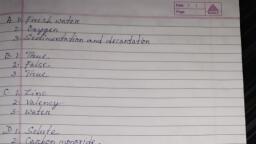 Date
Page
A. 1. Fresh water
2. Oxygen
3. Sedimentation and decantation
B. 1. True
2. False
3. True
C. 1. Zinc
2. Valency
3. Water
D. 1. Solute
2. Carbon monoxide.